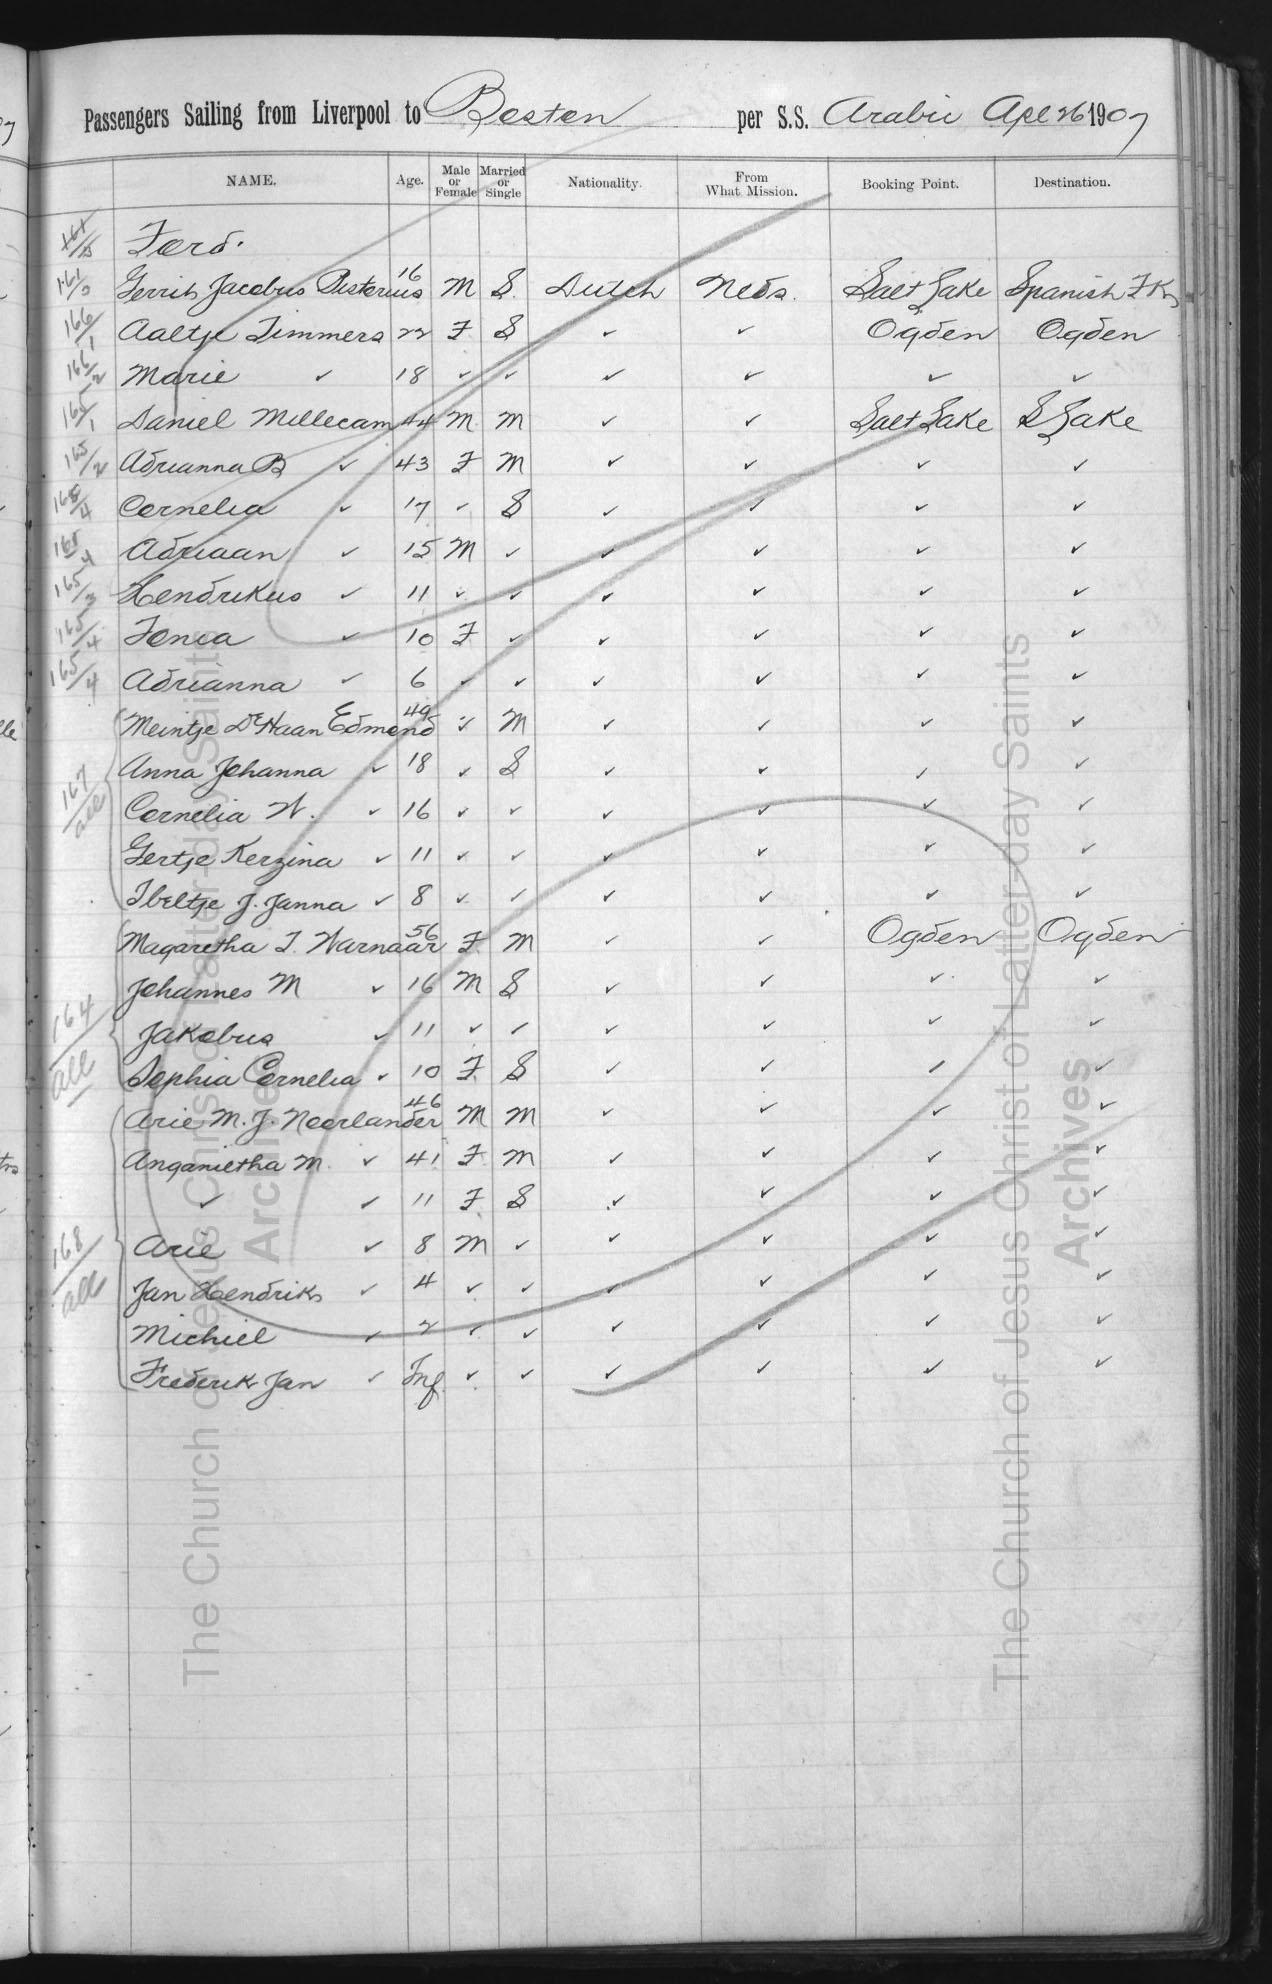 Passengers Sailing from Liverpool to Boston per S.S. Arabic Apl 26 1907
NAME. Age. Male or Female Married or Single Nationality. From What Mission. Booking Point. Destination.
Ford.
Gerrit Jacobus Pistorius 16 M S. Dutch Neds. Salt Lake Spanish Fk
166/1 Aaltje Timmers 22 F S ✓ ✓ Ogden Ogden
166/2 Marie ✓ 18 ✓ ✓ ✓ ✓ ✓ ✓
165/1 Daniel Millecam 44 M M ✓ ✓ Salt Lake S Lake
165/2 Adrianna B ✓ 43 F M ✓ ✓ ✓ ✓
165/4 Cornelia ✓ 17 ✓ S ✓ ✓ ✓ ✓
165/4 Adriaan ✓ 15 M ✓ ✓ ✓ ✓ ✓
165/3 Hendrikus ✓ 11 ✓ ✓ ✓ ✓ ✓ ✓
165/4 Tonia ✓ 10 F ✓ ✓ ✓ ✓ ✓
165/4 Adrianna ✓ 6 ✓ ✓ ✓ ✓ ✓ ✓
Meintje De Haan Edmond 49 ✓ M ✓ ✓ ✓ ✓
167/all Anna Johanna ✓ 18 ✓ S ✓ ✓ ✓ ✓
Cornelia W. ✓ 16 ✓ ✓ ✓ ✓ ✓ ✓
Gertje Kerzina ✓ 11 ✓ ✓ ✓ ✓ ✓ ✓
Ibeltje J. Janna ✓ 8 ✓ ✓ ✓ ✓ ✓ ✓
Magaretha T. Warnaar 56 F M ✓ ✓ Ogden Ogden
Johannes M ✓ 16 M S ✓ ✓ ✓ ✓
164/all Jakobus ✓ 11 ✓ ✓ ✓ ✓ ✓ ✓
Sophia Cornelia ✓ 10 F S ✓ ✓ ✓ ✓
Arie M. J. Noorlander 46 M M ✓ ✓ ✓ ✓
Anganietha M. ✓ 41 F M ✓ ✓ ✓ ✓
✓ ✓ 11 F S ✓ ✓ ✓ ✓
168/all Arie ✓ 8 M ✓ ✓ ✓ ✓ ✓
Jan Hendrik ✓ 4 ✓ ✓ ✓ ✓ ✓ ✓
Michiel ✓ 2 ✓ ✓ ✓ ✓ ✓ ✓
Frederik Jan ✓ Inf ✓ ✓ ✓ ✓ ✓ ✓
The Church of Jesus Christ of Latter-day Saints
Archives
The Church of Jesus Christ of Latter-day Saints
Archives